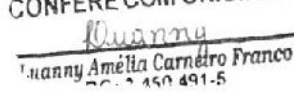 CONFERE COM
Luanny
Luanny Amélia Carneiro Franco
450 491-5